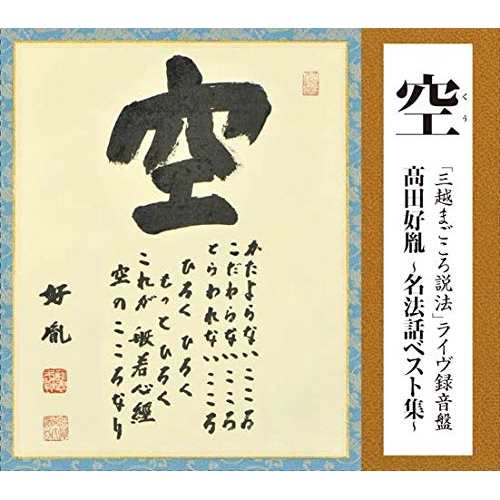 空
かたよらないこころ
こだわらないこころ
とらわれないこころ
ひろく ひろく
もっと ひろく
これが 般若心經
空 の こころ なり
好胤
空
くう
「三越まごころ説法」ライヴ録音盤
高田好胤 ~名法話ベスト集~